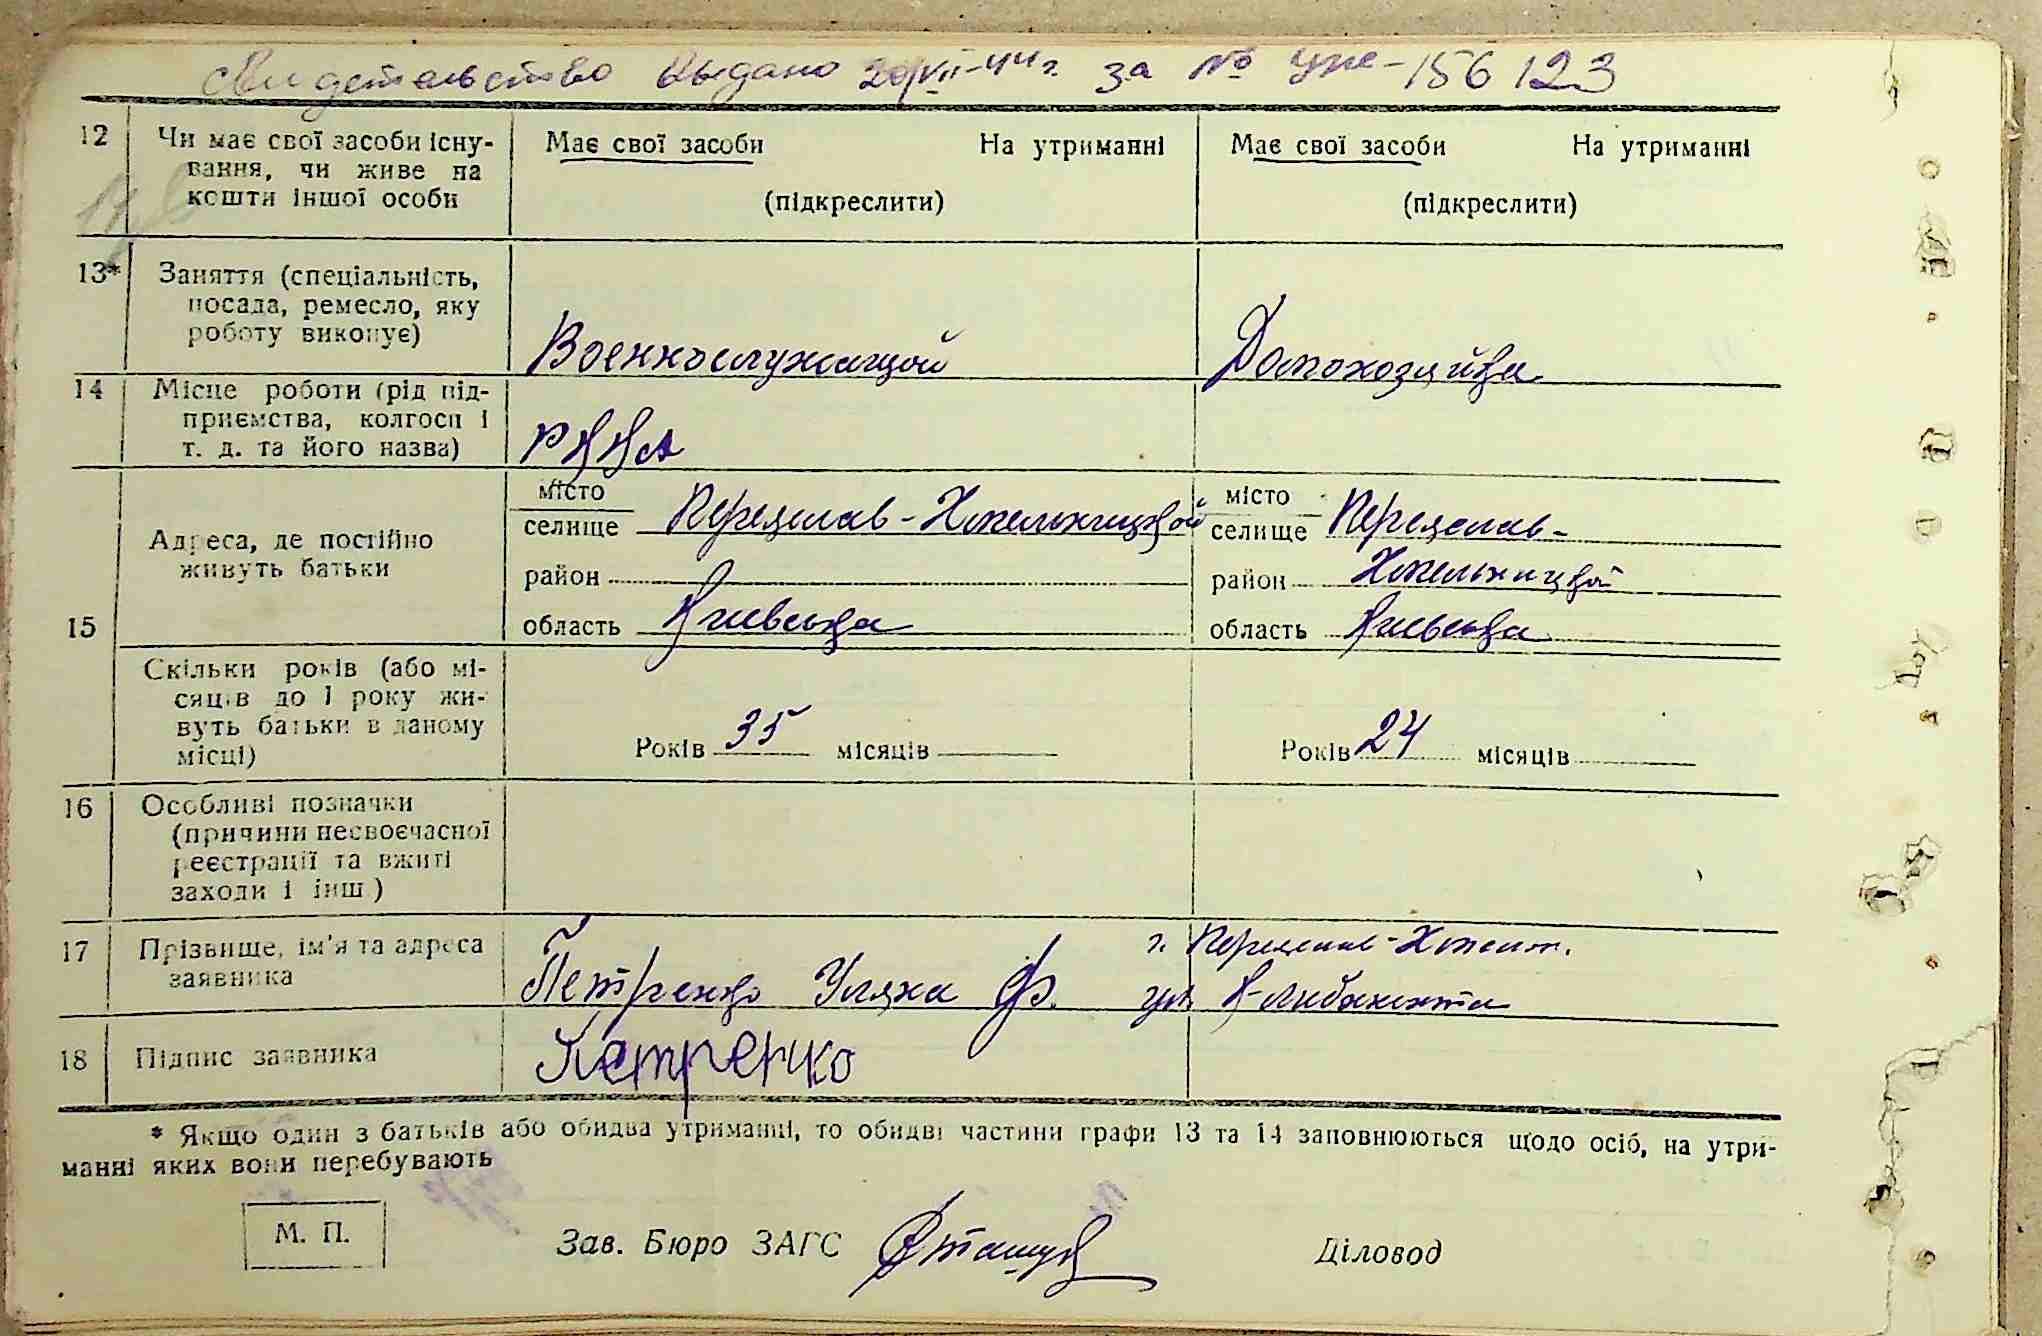 Свидетельство выдано 20/VII-44 г. за № УПС-156123
12 Чи має свої засоби існу-
вання, чи живе на
кошти іншої особи
Має свої засоби На утриманні
(підкреслити)
Має свої засоби На утриманні
(підкреслити)
13* Заняття (спеціальність,
посада, ремесло, яку
роботу виконує)
Военнослужащой
Домохозяйка
14 Місце роботи (рід під-
приємства, колгосп і
т. д. та його назва)
РККА
15 Адреса, де постійно
живуть батьки
місто
селище Переяслав-Хмельницкой
район
область Киевська
місто
селище Переяслав-
район Хмельницкой
область Киевська
Скільки років (або мі-
сяців до 1 року жи-
вуть батьки в даному
місці)
Років 35 місяців
Років 24 місяців
16 Особливі позначки
(причини несвоєчасної
реєстрації та вжиті
заходи і інш)
17 Прізвище, ім'я та адреса
заявника
Петренко Уляна Ф.
г. Переяслав-Хмельн.
ул. К-Либкнехта
18 Підпис заявника
Петренко
* Якщо один з батьків або обидва утриманні, то обидві частини графи 13 та 14 заповнюються щодо осіб, на утри-
манні яких вони перебувають
М. П.
Зав. Бюро ЗАГС
Діловод